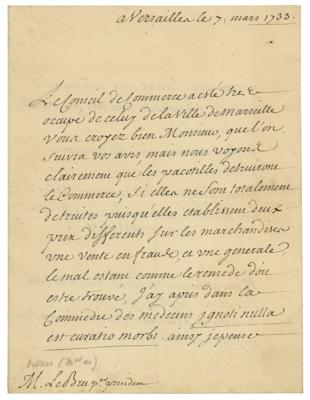 a Versailles le 7. mars 1733.
Le Conseil de Commerce a esté tres
occupé de celuy de la Ville de Marseille
Vous croyez bien Monsieur, que l'on
suivra vos avis, mais nous voyons
clairement que les pacotilles detruiront
le Commerce, si elles ne sont totalement
detruites puisqu'elles etablissent deux
prix differents sur les marchandises
une vente en fraude, et une generale,
le mal estant connu le remede doit
estre trouvé, J'ay apris dans la
Commedie des medecins ignoti nulla
est curatio morbi. ainsy je pense
Villars (Mal de)
M. Le Bret pr. president